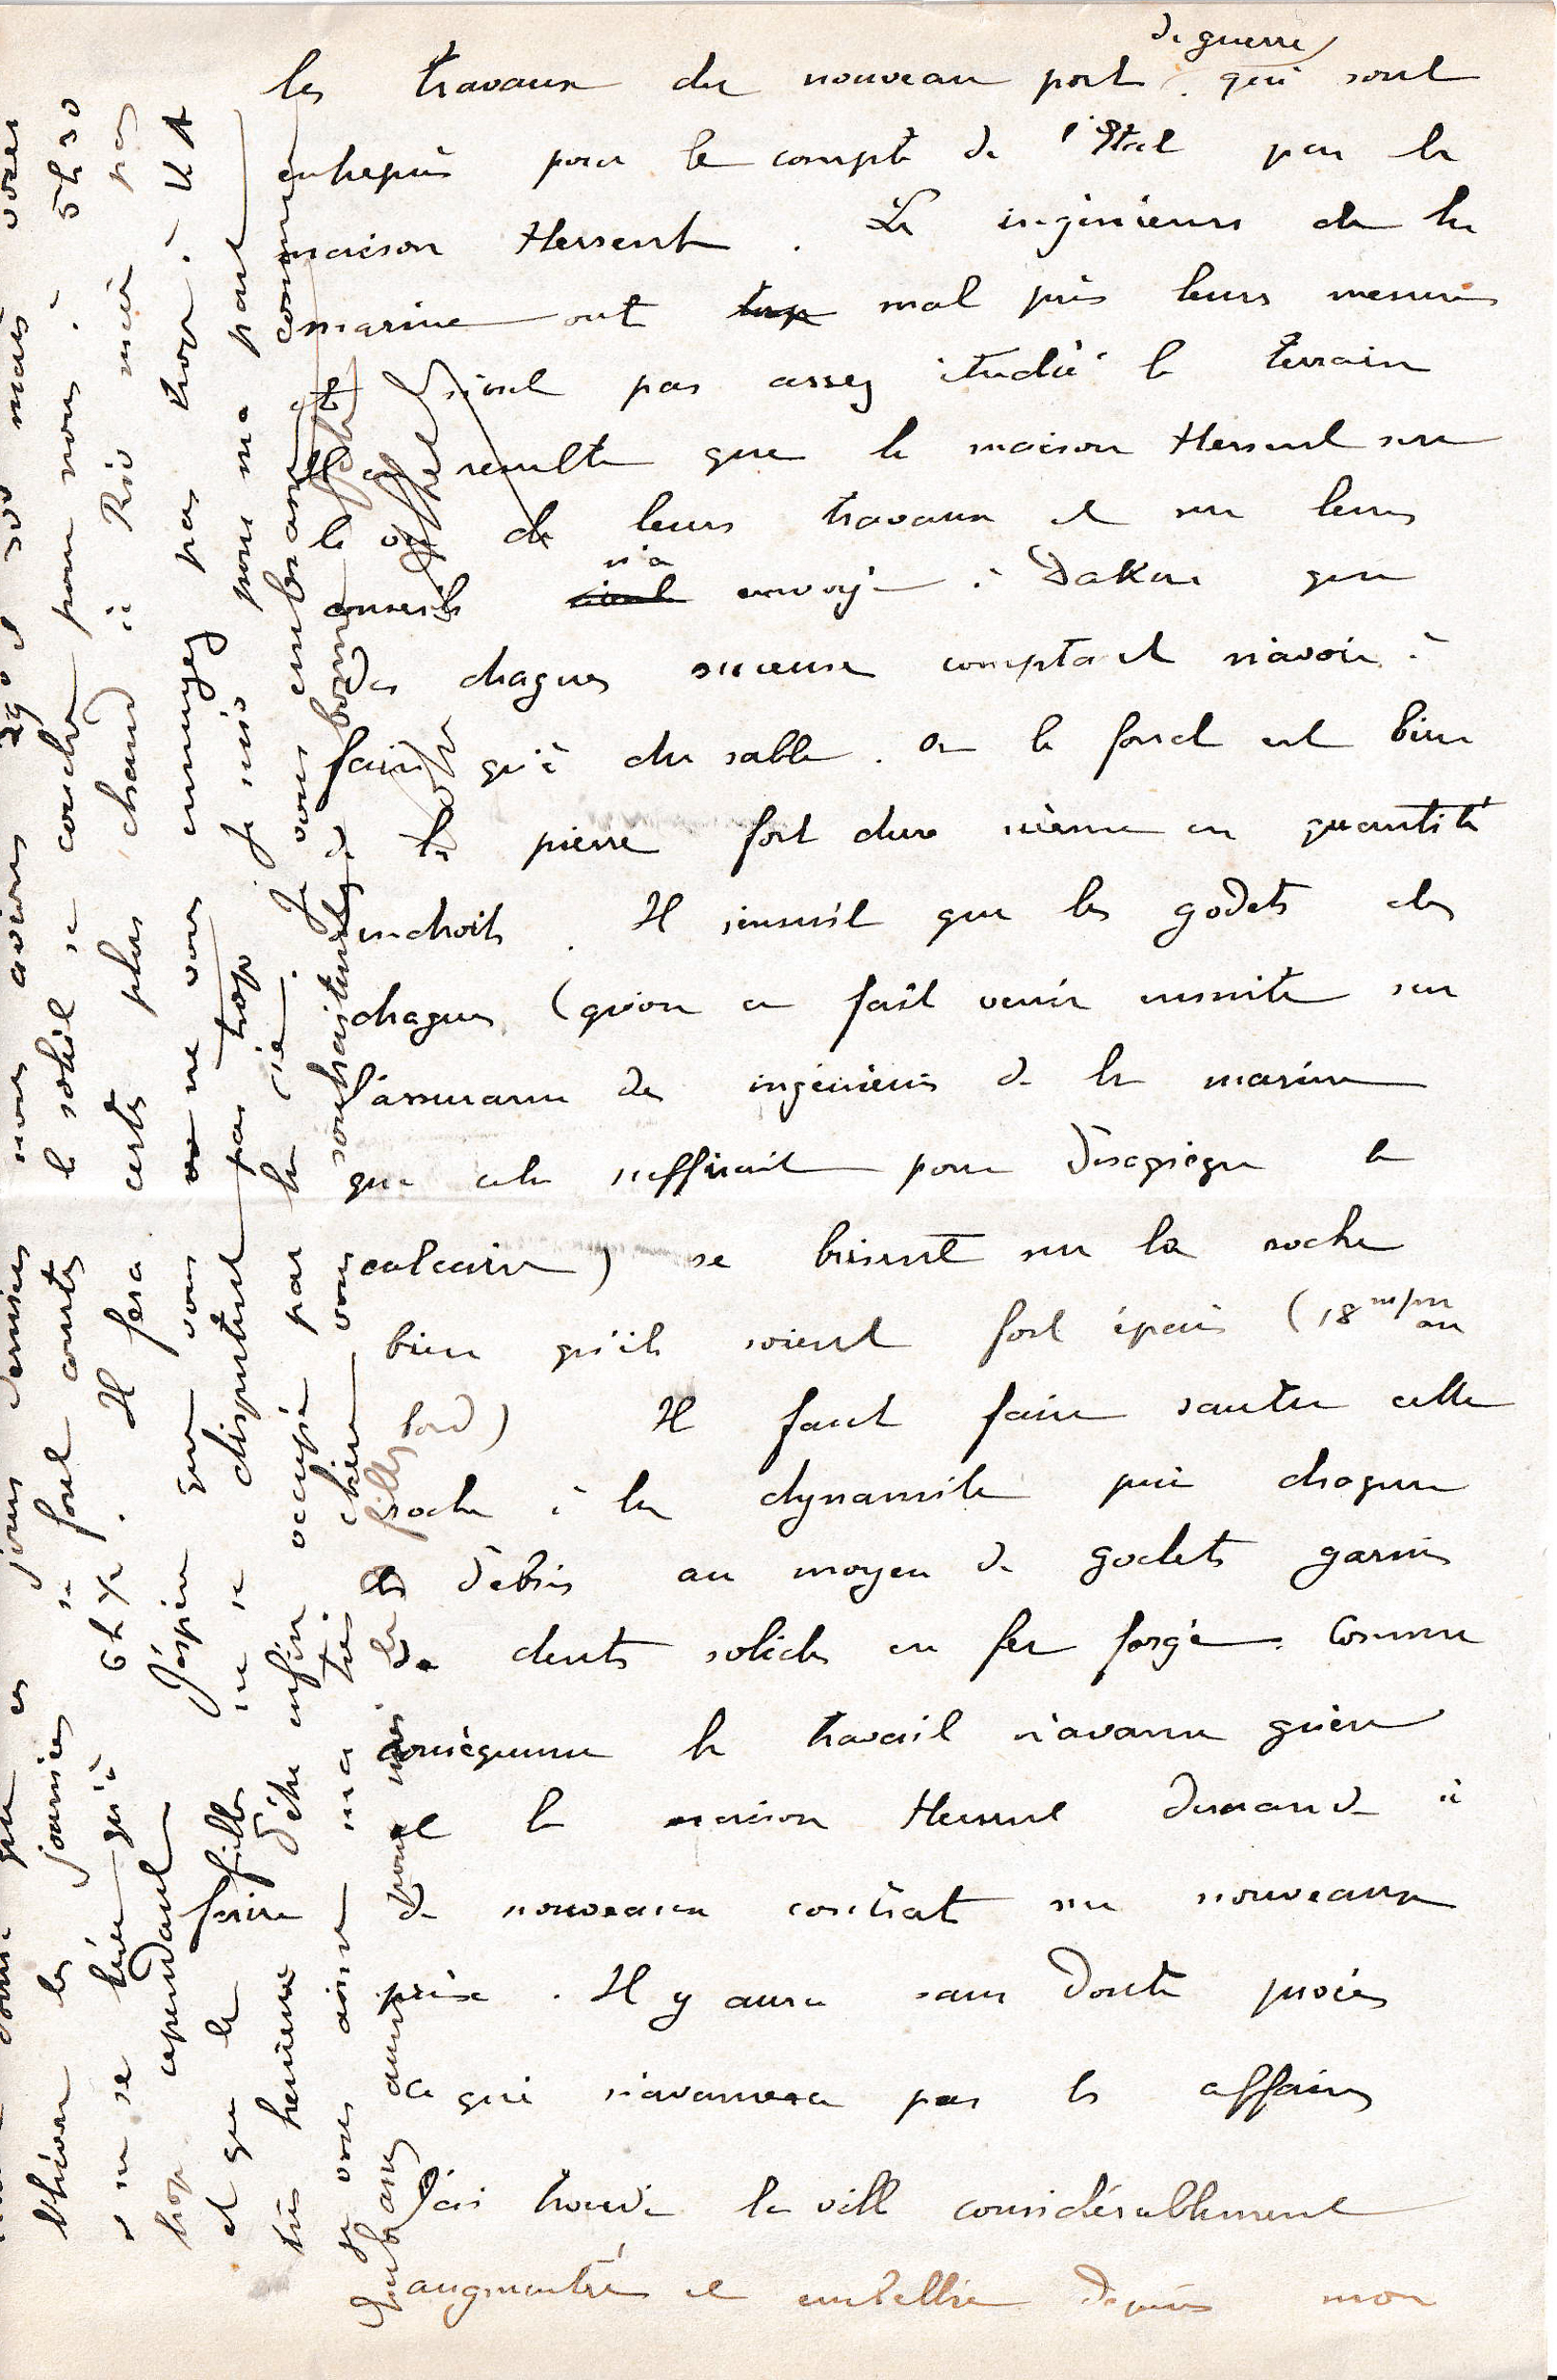 de guerre
les travaux du nouveau port qui sont
entrepris pour le compte de l'Etat par la
maison Hersent. Les ingénieurs de la
marine ont trop mal pris leurs mesures
et n'ont pas assez étudié le terrain
Il en resulte que la maison Hersent sur
le vu de leurs travaux et sur leurs
n'a
conseils envoyé à Dakar que
des dragues suceuses comptant n'avoir à
faire qu'à du sable. Or le fond est bien
de pierre fort dure même en quantité
endroits. Il s'ensuit que les godets des
dragues (qu'on a fait venir ensuite sur
l'assurance des ingénieurs de la marine
que cela suffirait pour désagréger le
calcaire) se brisent sur la roche
bien qu'ils soient fort épais (18 m/m au
bord) Il faut faire sauter cette
roche à la dynamite puis draguer
les débris au moyen de godets garnis
de dents solides en fer forgé. Comme
conséquence le travail n'avance guère
et la maison Hersent demande à
de nouveaux contrat sur nouveaux
prix. Il y aura sans doute procès
ce qui n'avancera pas les affaires
J'ai trouvé la ville considérablement
augmentée et embellie depuis mon
que ces jours derniers nous avions 29° et 30° mais
les journées se font courtes le soleil se couche pour nous à 5h30
et ne se lève qu'à 6h ½. Il fera certes plus chaud à Rio mais pas
trop cependant J'espère que vous ne vous ennuyez pas trop à
et que les filles ne se disputent pas trop Je suis pour ma part
très heureux d'être enfin occupé par la vie. Je vous embrasse comme
je vous aime ma très chère vous souhaitant bonne
Embrassez aussi pour moi les filles